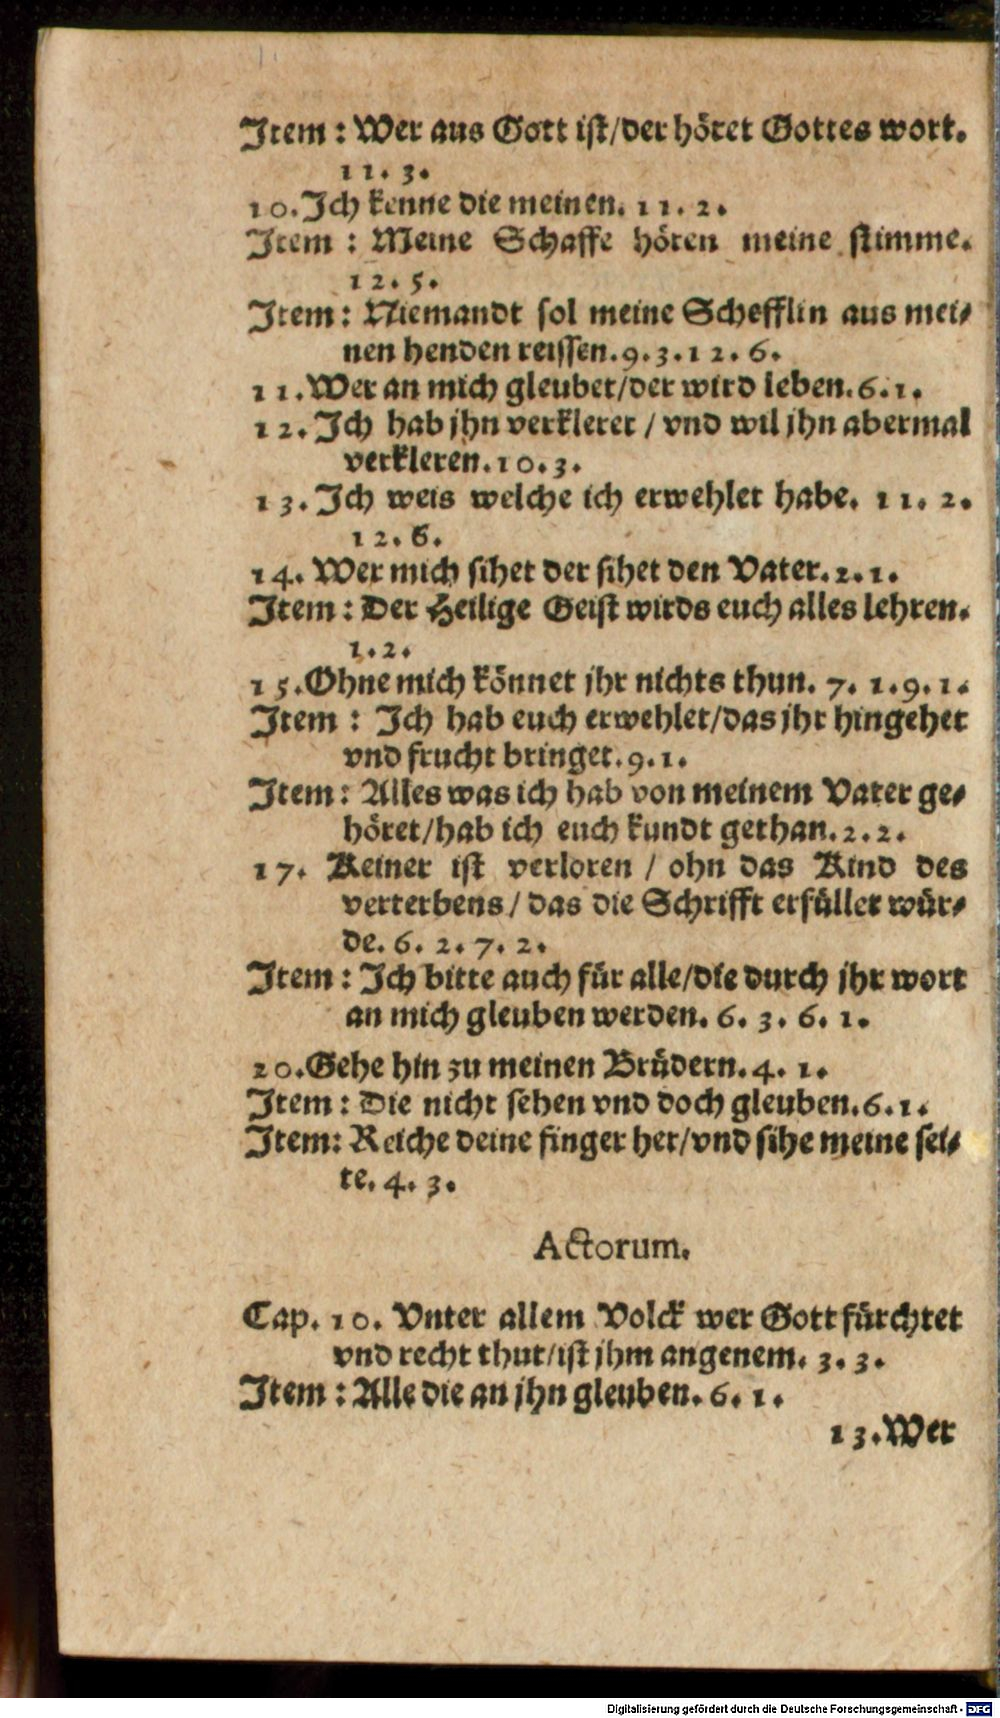 Item : Wer aus Gott ist/der höret Gottes wort.
11. 3.
10. Ich kenne die meinen. 11. 2.
Item : Meine Schaffe hören meine stimme.
12. 5.
Item : Niemandt sol meine Schefflin aus mei⸗
nen henden reissen. 9. 3. 12. 6.
11. Wer an mich gleubet/der wird leben. 6. 1.
12. Ich hab jhn verkleret / vnd wil jhn abermal
verkleren. 10. 3.
13. Ich weis welche ich erwehlet habe. 11. 2.
12. 6.
14. Wer mich sihet der sihet den Vater. 2. 1.
Item : Der Heilige Geist wirds euch alles lehren.
1. 2.
15. Ohne mich könnet jhr nichts thun. 7. 1. 9. 1.
Item : Ich hab euch erwehlet/das jhr hingehet
vnd frucht bringet. 9. 1.
Item : Alles was ich hab von meinem Vater ge⸗
höret/hab ich euch kundt gethan. 2. 2.
17. Keiner ist verloren / ohn das Kind des
verterbens / das die Schrifft erfüllet wür⸗
de. 6. 2. 7. 2.
Item : Ich bitte auch für alle/die durch jhr wort
an mich gleuben werden. 6. 3. 6. 1.
20. Gehe hin zu meinen Brüdern. 4. 1.
Item : Die nicht sehen vnd doch gleuben. 6. 1.
Item: Reiche deine finger her/vnd sihe meine sei⸗
te. 4. 3.
Actorum.
Cap. 10. Vnter allem Volck wer Gott fürchtet
vnd recht thut/ist jhm angenem. 3. 3.
Item : Alle die an jhn gleuben. 6. 1.
13. Wer
Digitalisierung gefördert durch die Deutsche Forschungsgemeinschaft - DFG